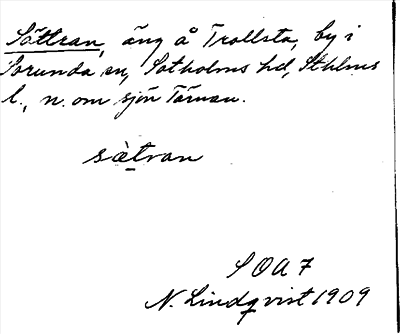 Sättran, äng å Trollsta, by i
Sorunda sn, Sotholms hd, Sthlms
l., n. om sjön Tärnan.
sætran
SOA 7
N. Lindqvist 1909